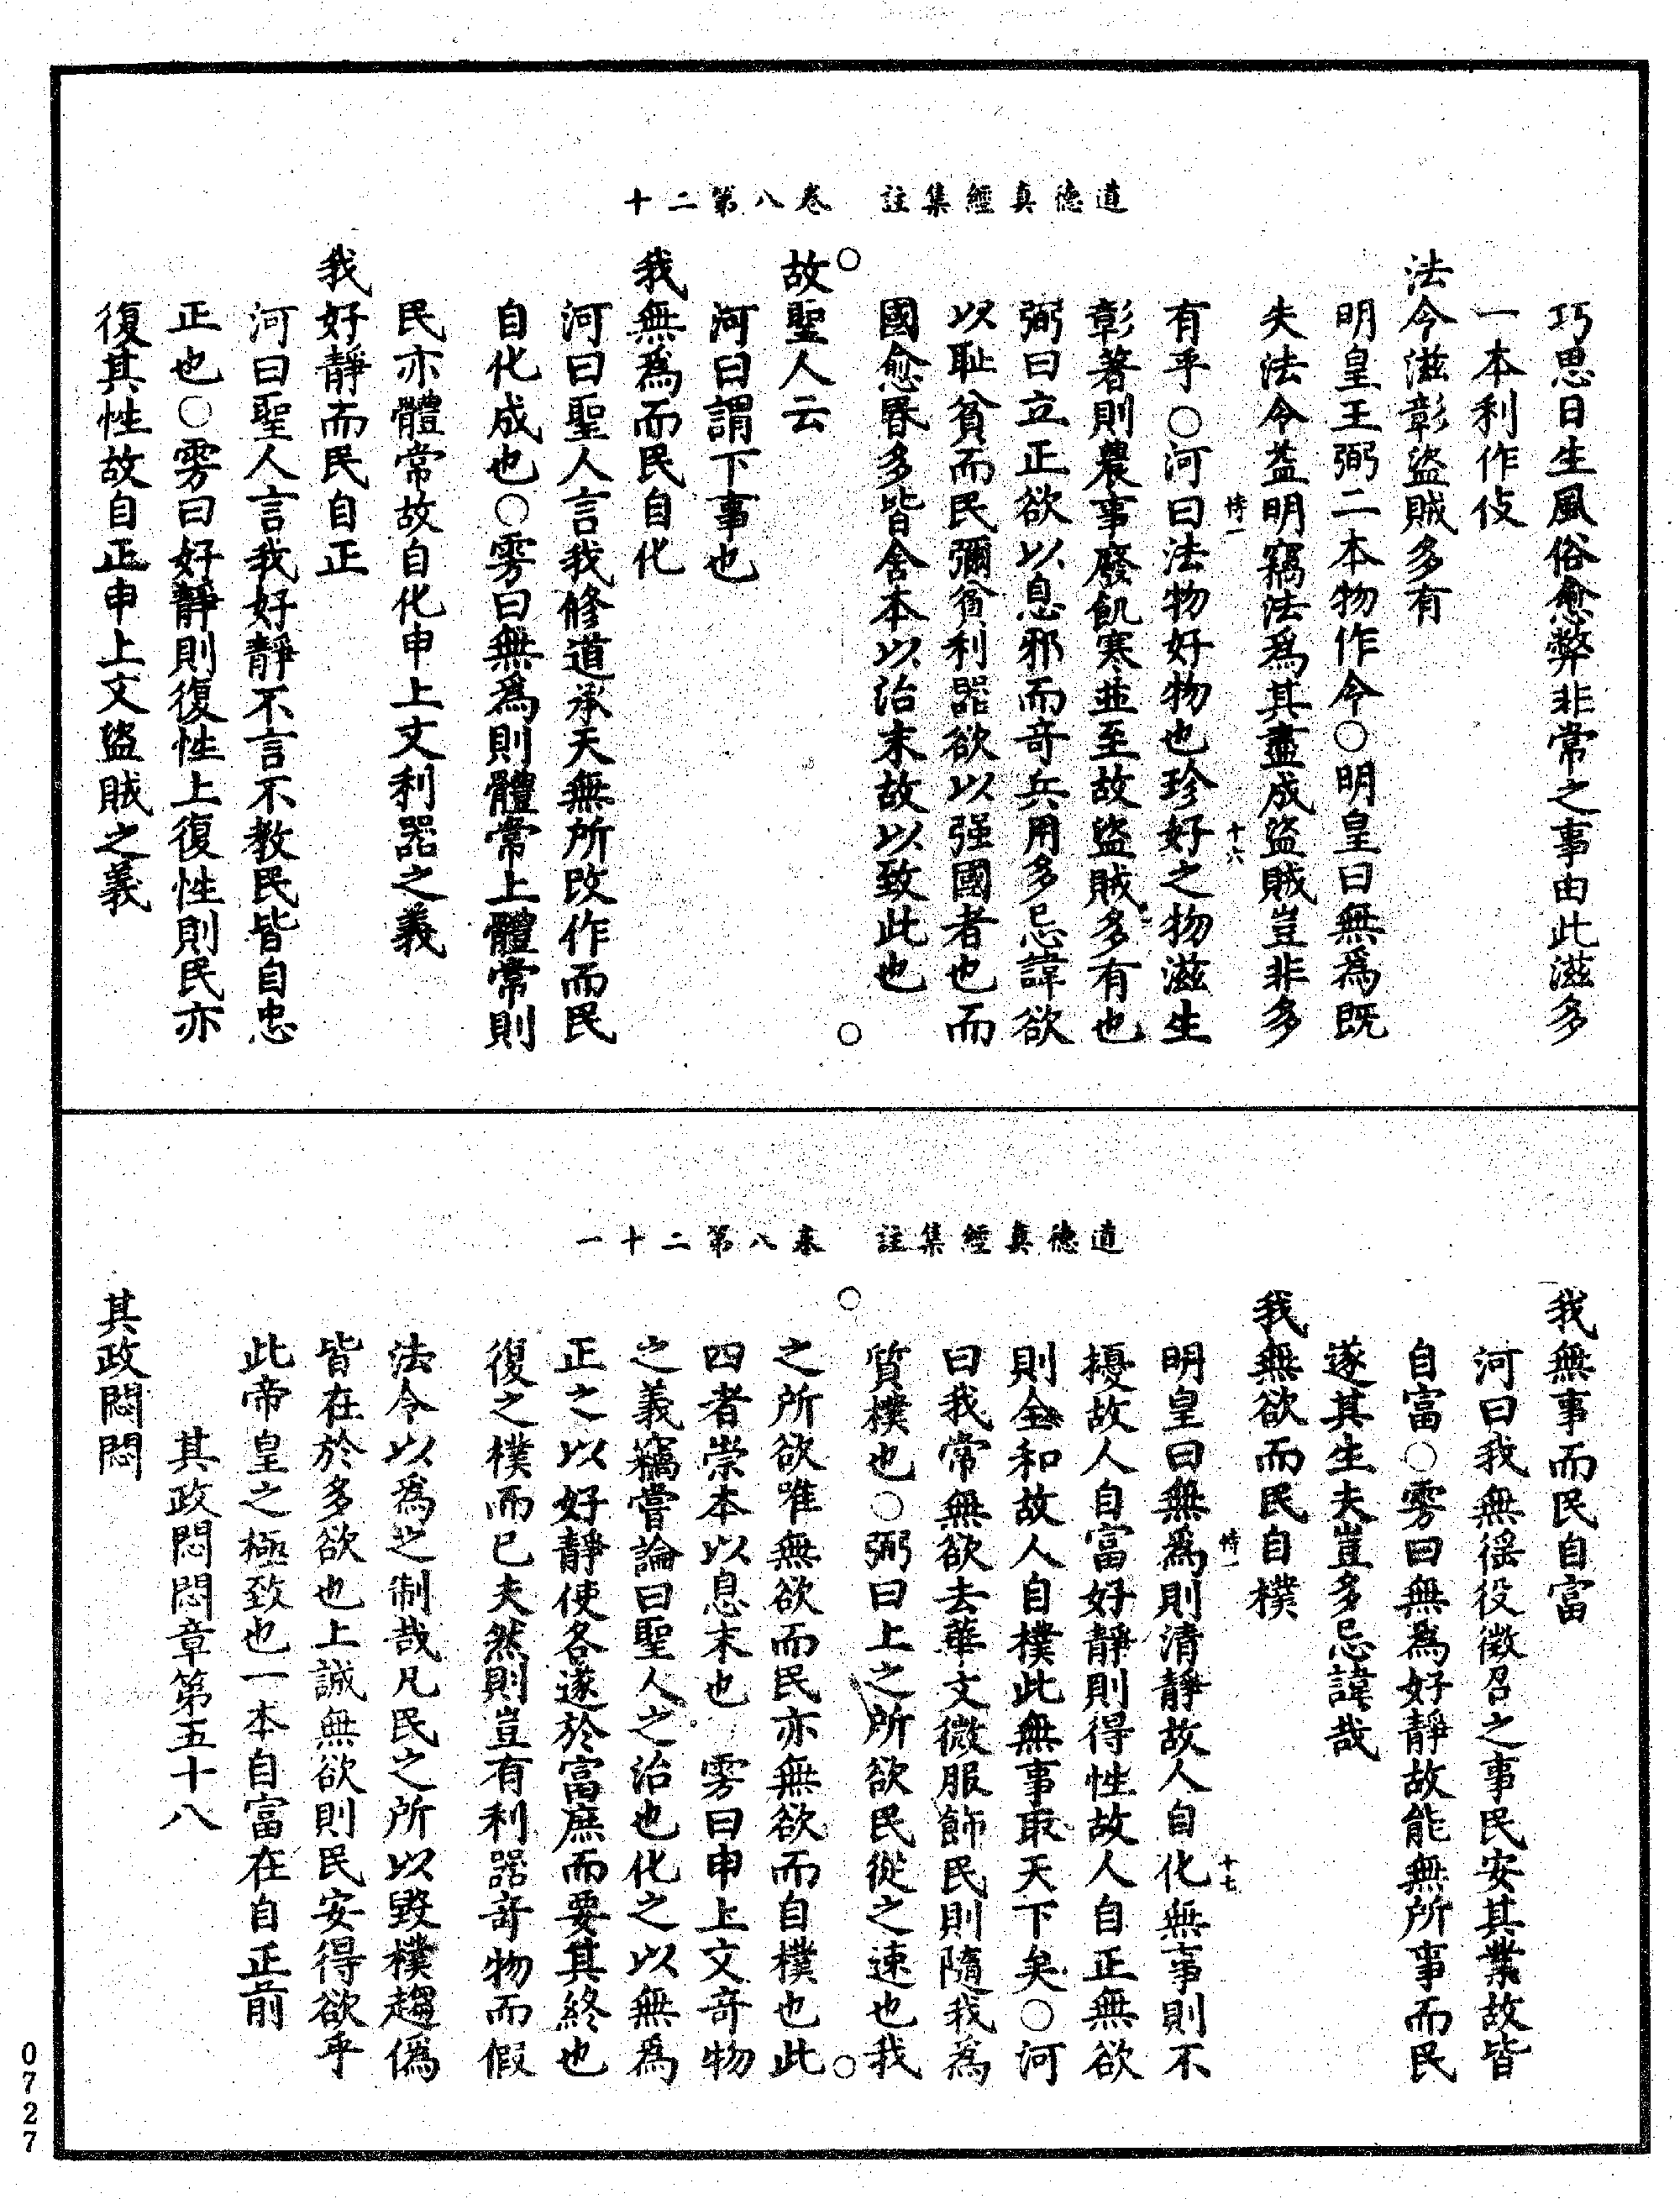 道德真經集註　卷八第二十
巧思日生風俗愈弊非常之事由此滋多
一本利作伎
法令滋彰盜賊多有
明皇王弼二本物作令○明皇曰無爲既
失法令益明竊法爲其盡成盜賊豈非多
有乎○河曰法物好物也珍好之物滋生
悳一　十六
彰著則農事廢飢寒並至故盜賊多有也
弼曰立正欲以息邪而奇兵用多忌諱欲
以恥貧而民彌貧利器欲以强國者也而
國愈昬多皆舍本以治末故以致此也
故聖人云
河曰謂下事也
我無爲而民自化
河曰聖人言我修道承天無所改作而民
自化成也○雱曰無爲則體常上體常則
民亦體常故自化申上文利器之義
我好靜而民自正
河曰聖人言我好靜不言不教民皆自忠
正也○雱曰好靜則復性上復性則民亦
復其性故自正申上文盜賊之義
道德真經集註　卷八第二十一
我無事而民自富
河曰我無徭役徵召之事民安其業故皆
自富○雱曰無爲好靜故能無所事而民
遂其生夫豈多忌諱哉
我無欲而民自樸
明皇曰無爲則清靜故人自化無事則不
悳一　十七
擾故人自富好靜則得性故人自正無欲
則全和故人自樸此無事取天下矣○河
曰我常無欲去華文微服飾民則隨我爲
質樸也○弼曰上之所欲民從之速也我
之所欲唯無欲而民亦無欲而自樸也此
四者崇本以息末也　雱曰申上文奇物
之義竊嘗論曰聖人之治也化之以無爲
正之以好靜使各遂於富庶而要其終也
復之樸而已夫然則豈有利器奇物而假
法令以爲之制哉凡民之所以毀樸趨僞
皆在於多欲也上誠無欲則民安得欲乎
此帝皇之極致也一本自富在自正前
其政悶悶章第五十八
其政悶悶
0727